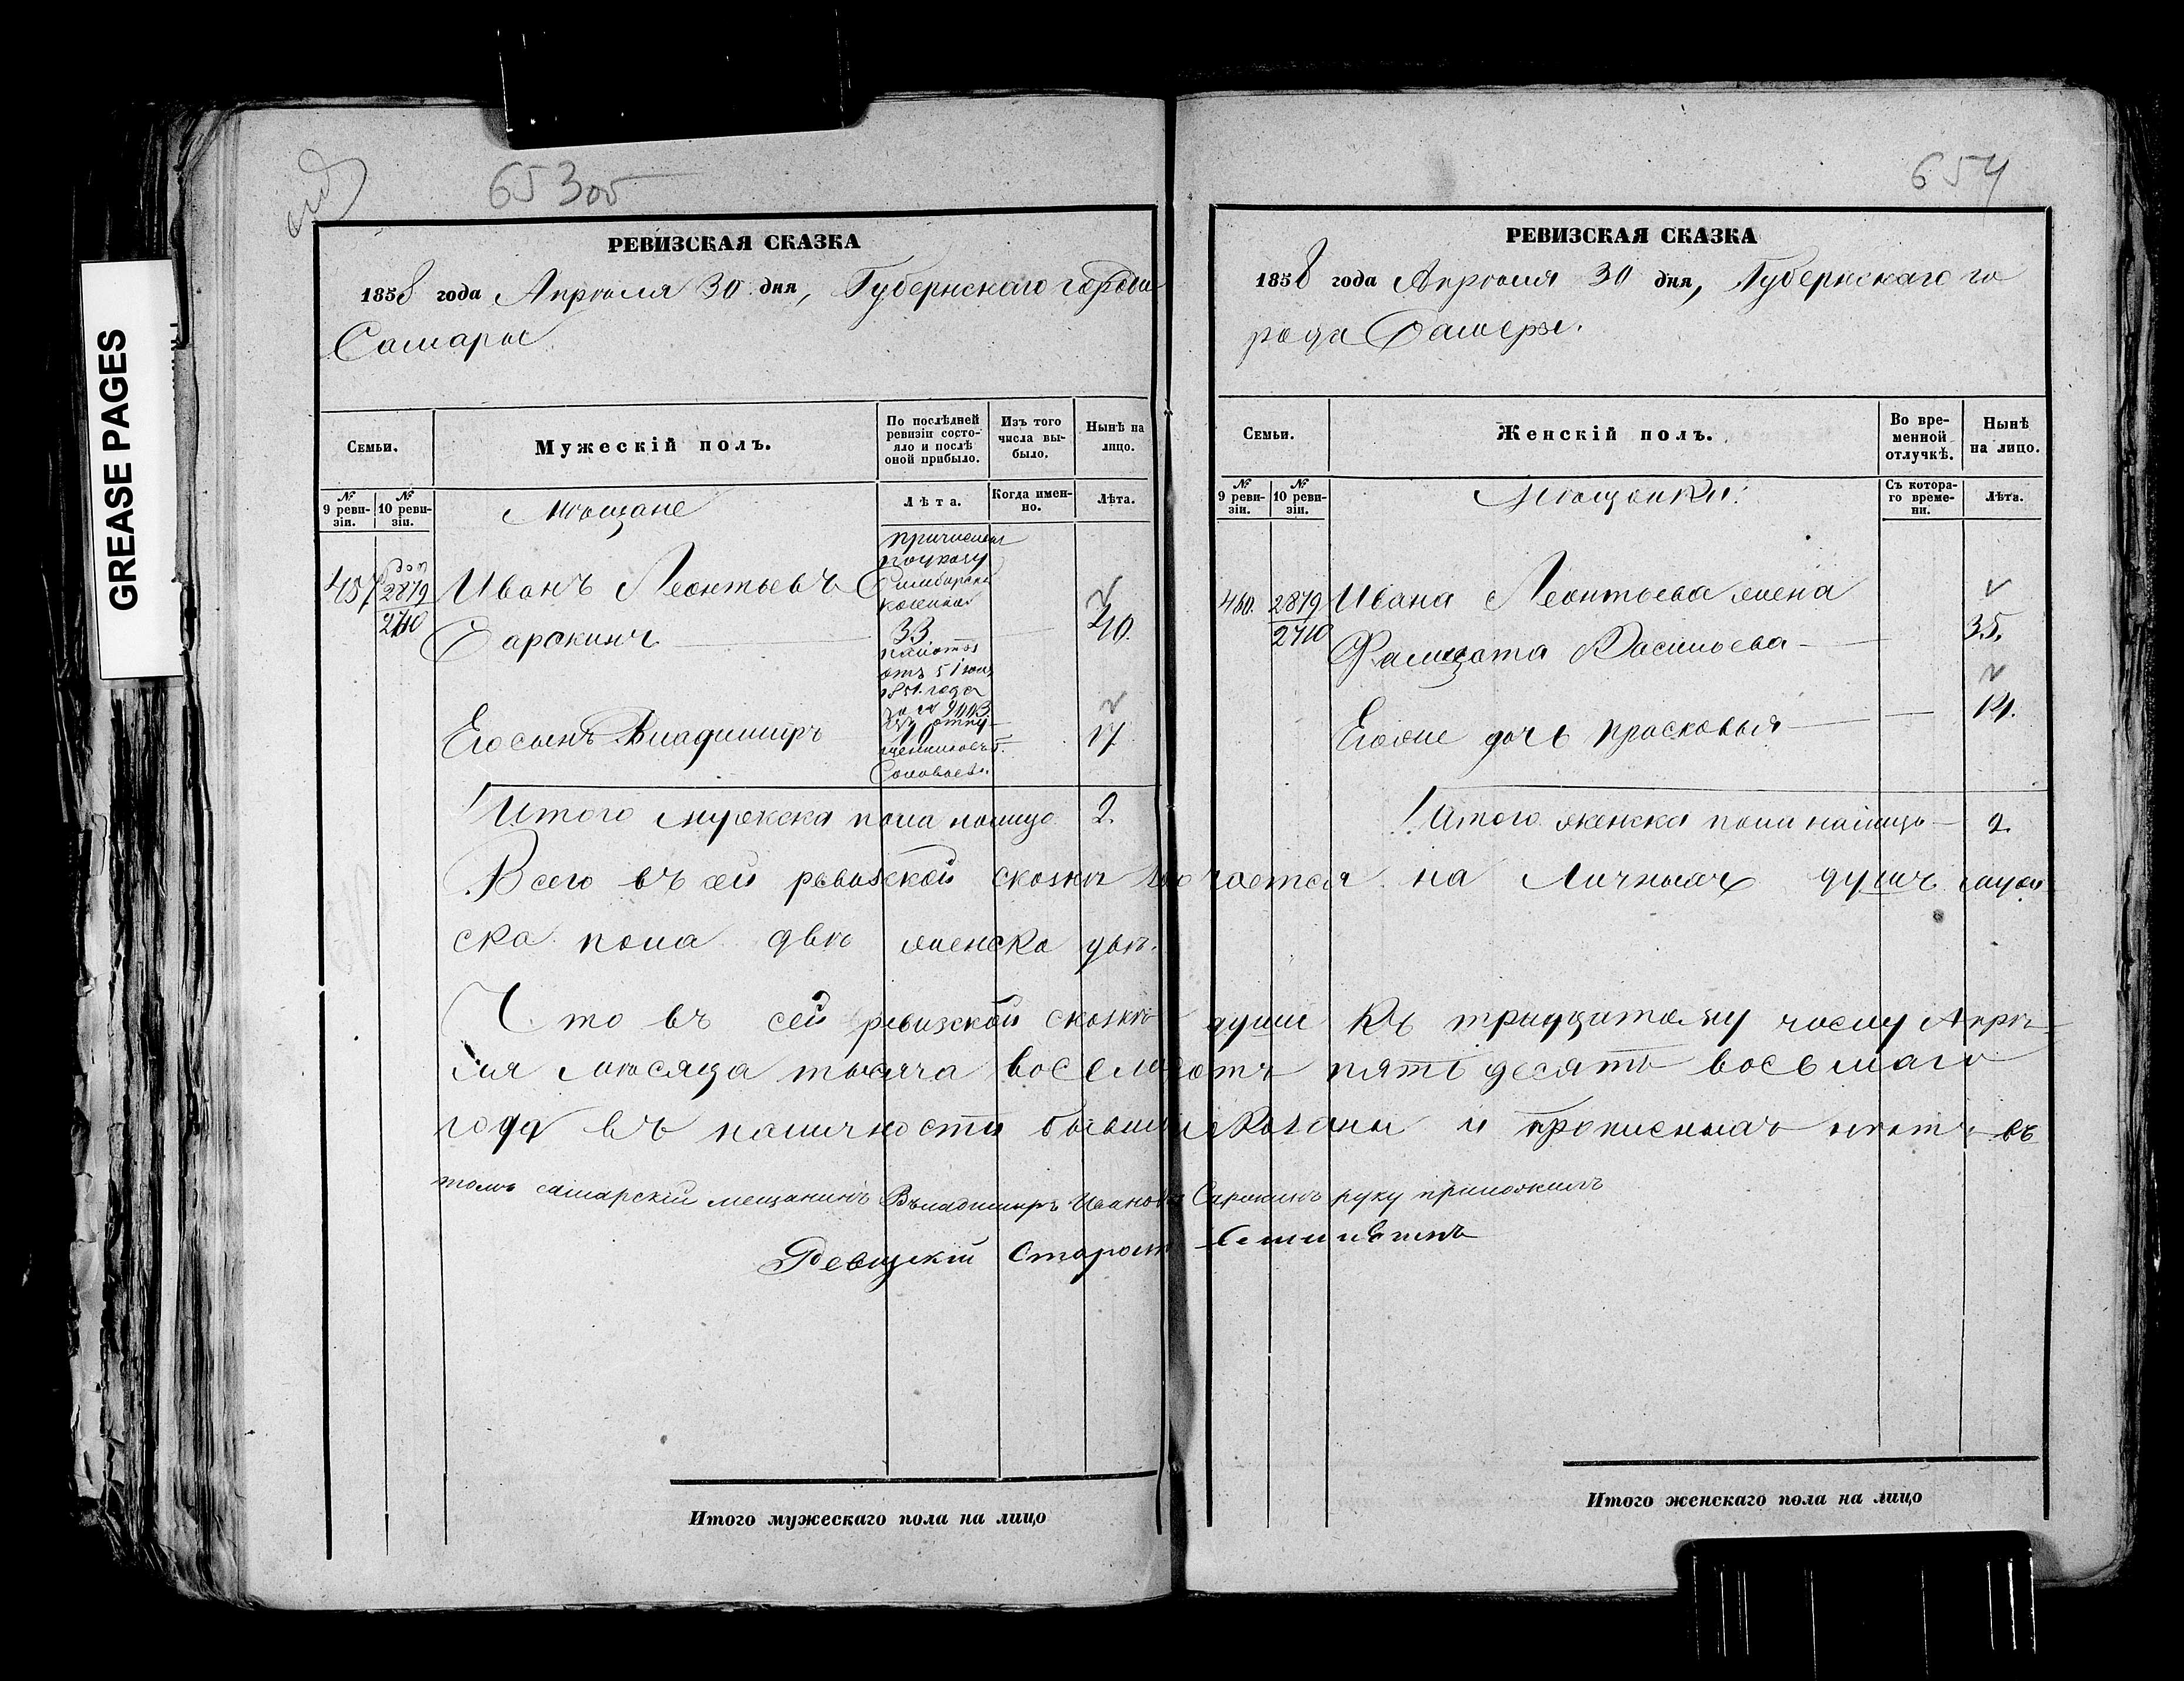 GREASE PAGES
653об
РЕВИЗСКАЯ СКАЗКА
1858 года Апрѣля 30 дня, Губернскаго города
Самары.
Семьи.
Мужескій полъ.
По послѣдней ревизіи состояло и послѣ оной прибыло.
Изъ того числа выбыло.
Нынѣ на лицо.
№ 9 ревизіи.
№ 10 ревизіи.
Мѣщане
Лѣта.
Когда именно.
Лѣта.
457
2879
2710
Иванъ Леонтьевъ
Сарокинъ
причислен
по указу
Симбирской
казенной
33.
палаты
отъ 5 июля
1851. года
за № 9113.
40.
Его сынъ Владимиръ
изъ отпу-
10
щенниковъ Г.
Соловьева.
17.
Итого мужеска пола налицо 2.
Всего въ сей ревизской сказкѣ
ска пола двѣ женска двѣ.
Что въ сей ревизской сказкѣ души къ тридцатому числу Апрѣ-
ля мѣсяца тысяча восемьсотъ пятьдесятъ восьмаго
года въ наличности бывши показаны и прописныхъ нѣтъ въ
томъ самарскій мещанинъ Въладимиръ Ивановъ Сарокинъ руку приложилъ
Ревизкій Староста
Итого мужескаго пола на лицо
654
РЕВИЗСКАЯ СКАЗКА
1858 года Апрѣля 30 дня, Губернскаго го
рода Самары.
Семьи.
Женскій полъ.
Во временной отлучкѣ.
Нынѣ на лицо.
№ 9 ревизіи.
№ 10 ревизіи.
Мѣщанки:
Съ котораго времени.
Лѣта.
460. 2879
2710
Ивана Леонтьева жена
Васильева
35.
Егоже дочь Прасковья
14.
Итого женска пола налицо 2.
на личныхъ душъ муже
Итого женскаго пола на лицо